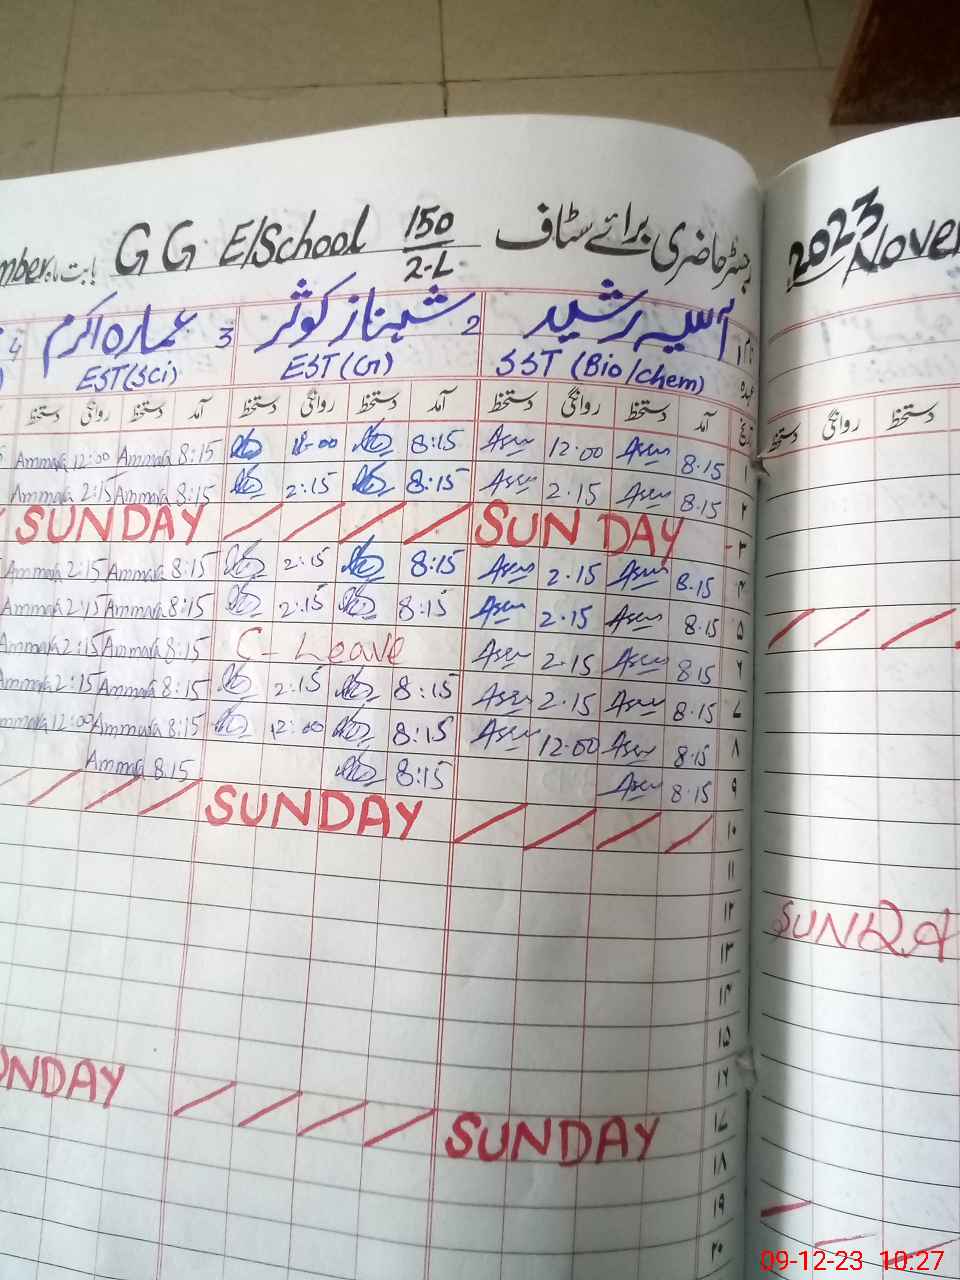 رجسٹر حاضری برائے سٹاف G G E/School 150/2-L بابت ماہ mber
2023 Nove
نام 1 آسیہ رشید 2 شہناز کوثر 3 عمارہ اکرم 4
عہدہ SST (Bio/chem) EST (G) EST (Sci)
تاریخ آمد دستخط روانگی دستخط آمد دستخط روانگی دستخط آمد دستخط روانگی دستخط
دستخط روانگی دستخط
۱ 8.15 12.00 8:15 12:00 8:15 Ammara 12:00 Ammara
۲ 8.15 2.15 8:15 2:15 8:15 Ammara 2:15 Ammara
۳ SUNDAY SUNDAY
۴ 8.15 2.15 8:15 2:15 8:15 Ammara 2:15 Ammara
۵ 8.15 2.15 8:15 2:15 8:15 Ammara 2:15 Ammara
۶ 8.15 2.15 C- Leave 8:15 Ammara 2:15 Ammara
۷ 8.15 2.15 8:15 2:15 8:15 Ammara 2:15 Ammara
۸ 8.15 12.00 8:15 12:00 8:15 Ammara 12:00 Ammara
۹ 8.15 8:15 8:15 Ammara
۱۰ SUNDAY
۱۱
۱۲
SUNDA
۱۳
۱۴
۱۵
۱۶
۱۷ SUNDAY UNDAY
۱۸
۱۹
۲۰
09-12-23 10:27